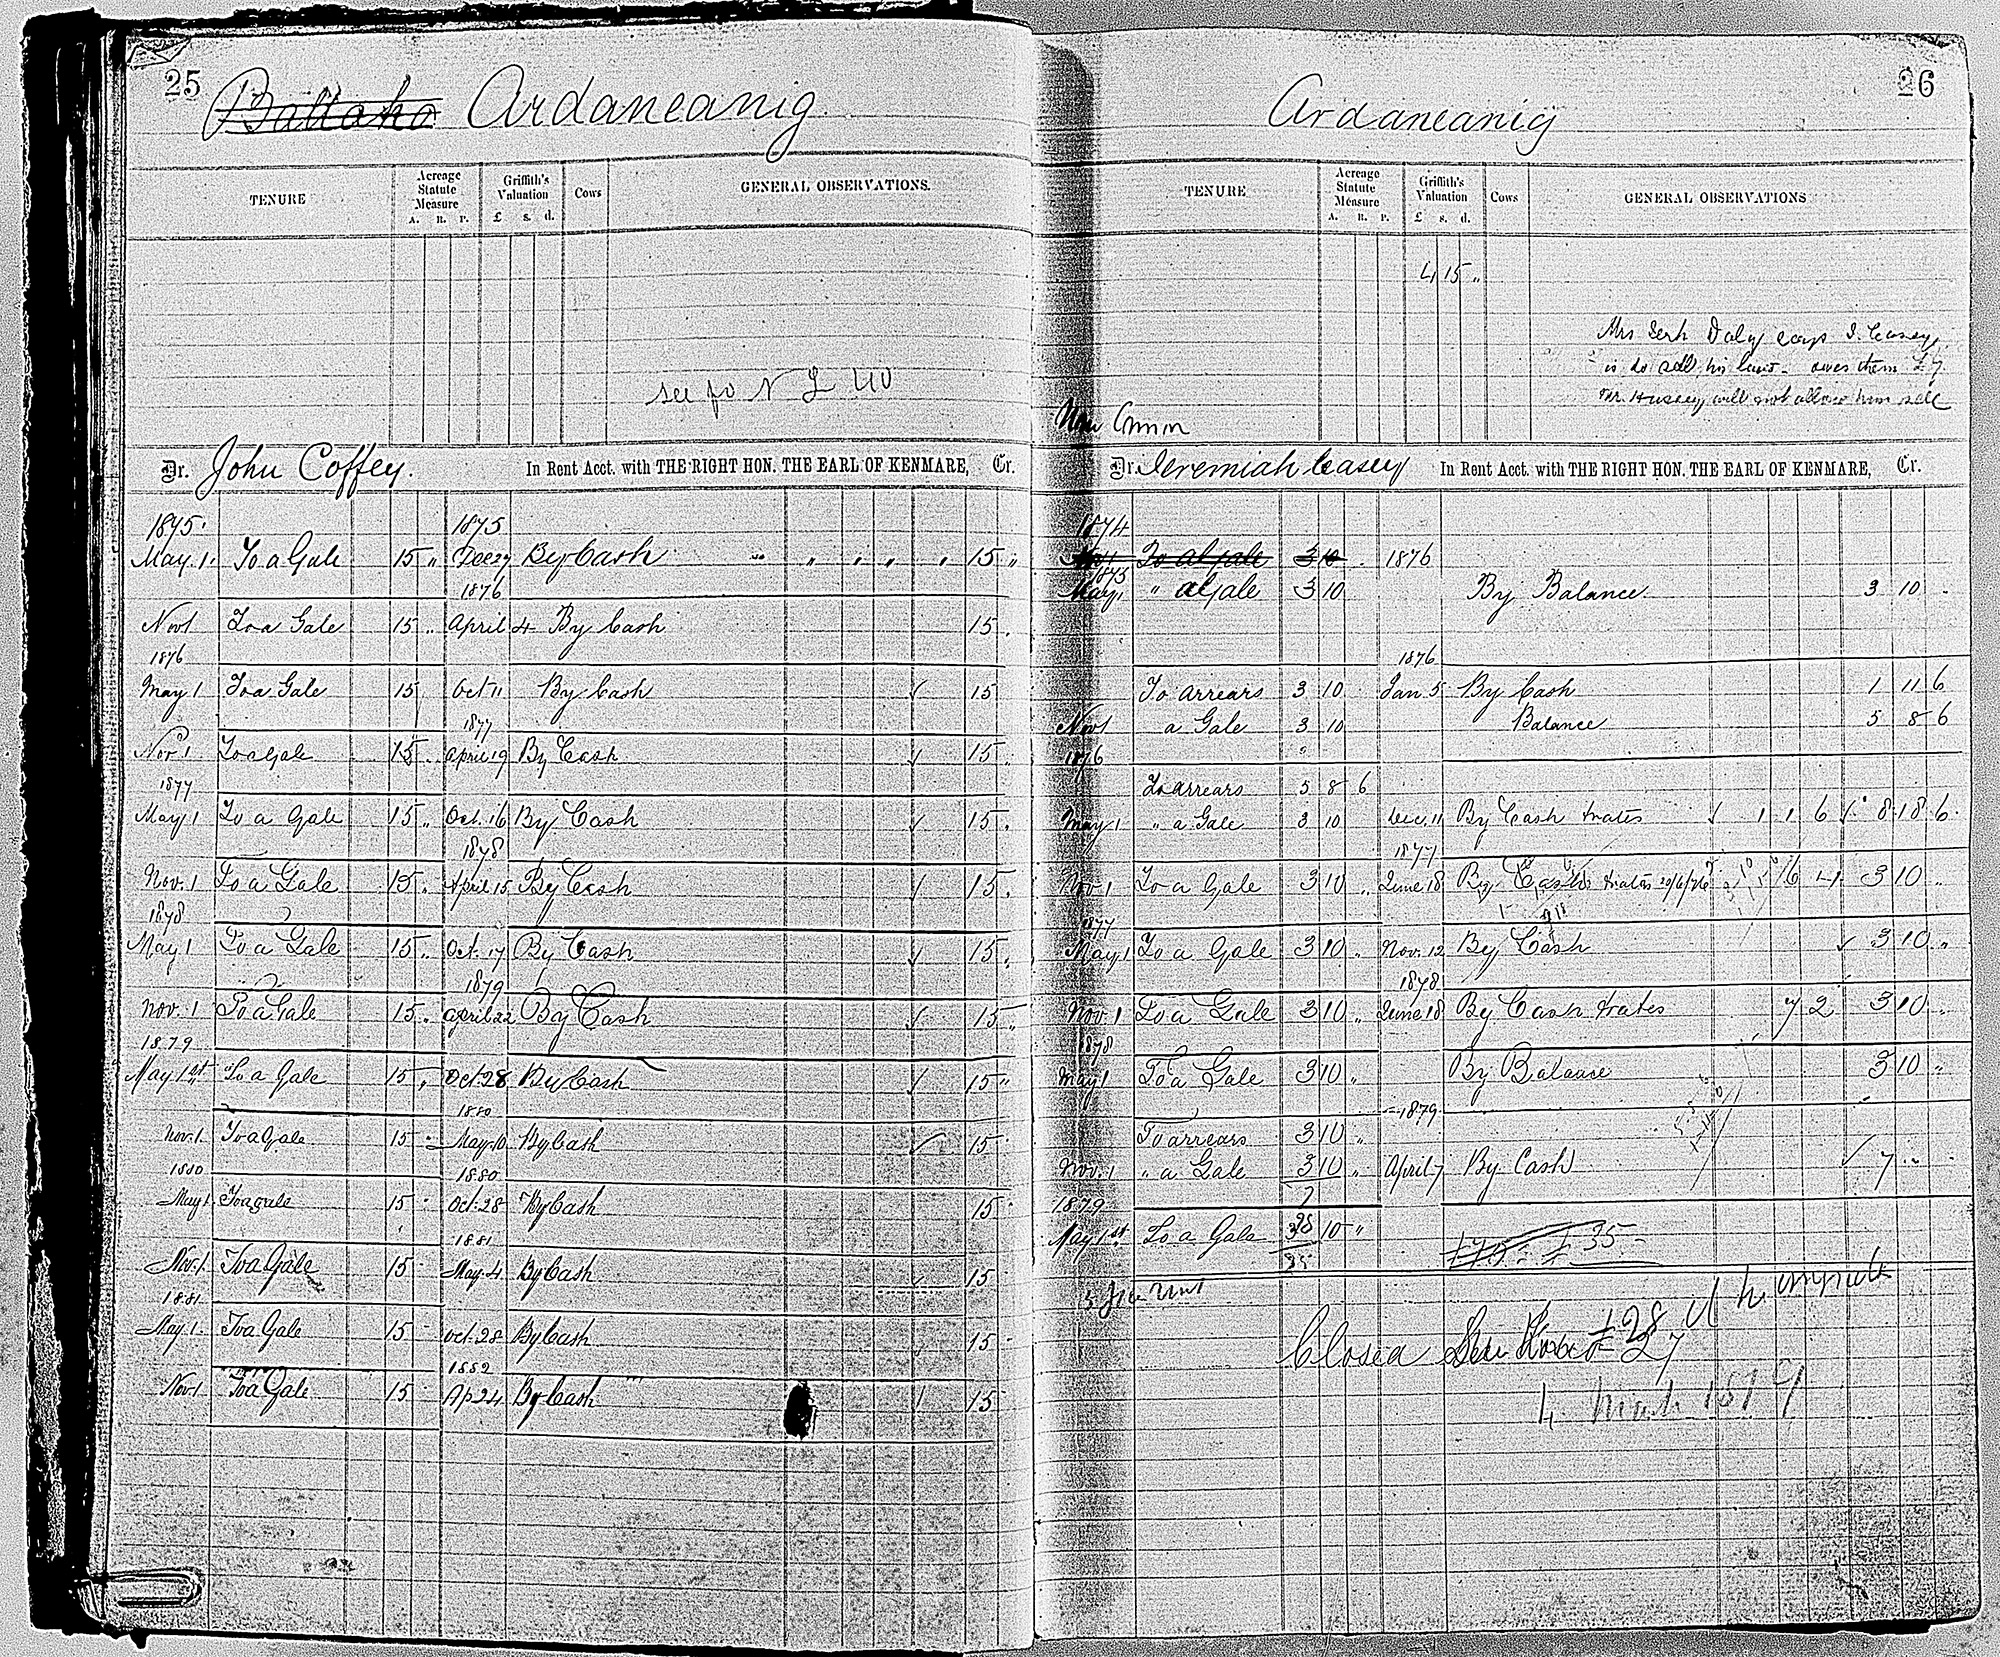 25
Ballaho Ardaneanig
TENURE Acreage Statute Measure A. R. P. Griffith's Valuation £ s. d. Cows GENERAL OBSERVATIONS.
see fo N L
Dr. John Coffey. In Rent Acct. with THE RIGHT HON. THE EARL OF KENMARE, Cr.
1875. 1875
May. 1. To a Gale 15 " Dec 27 By Cash " " " " " 15 "
1876
Nov 1 To a Gale 15 " April 4 By Cash 15 .
1876
May 1 To a Gale 15 Oct 11 By Cash ✓ 15
1877
Nov 1 To a Gale 15 " April 19 By Cash ✓ 15 .
1877
May 1 To a Gale 15 " Oct. 16 By Cash ✓ 15 .
1878
Nov. 1 To a Gale 15 " April 15 By Cash ✓ 15 .
1878
May 1 To a Gale 15 " Oct. 17 By Cash ✓ 15 .
1879
Nov. 1 To a Gale 15 " April 22 By Cash ✓ 15 "
1879
May 1st To a Gale 15 " Oct. 28 By Cash ✓ 15 "
1880
Nov. 1. To a Gale 15 - May 10 By Cash ✓ 15 -
1880 1880
May 1 To a Gale 15 - Oct. 28 By Cash 15 -
1881
Nov. 1. To a Gale 15 - May 4 By Cash ✓ 15
1881
May 1. To a Gale 15 - Oct. 28 By Cash 15 -
1882
Nov 1 To a Gale 15 - Ap 24 By Cash 15
26
Ardaneanig
TENURE Acreage Statute Measure A. R. P. Griffith's Valuation £ s. d. Cows GENERAL OBSERVATIONS
4 15 "
Mrs Daly says J. Casey
is to sell his - owes them £7.
Mr. Hussey will not allow him sell
Dr. Jeremiah Casey In Rent Acct. with THE RIGHT HON. THE EARL OF KENMARE, Cr.
1874
Nov 1 To a Gale 3 10 . 1876
1875
May 1 " a Gale 3 10 By Balance 3 10 .
1876
To arrears 3 10 Jan 5 By Cash 1 11 6
Nov 1 a Gale 3 10 Balance 5 8 6
1876
To arrears 5 8 6
May 1 " a Gale 3 10 Dec. 11 By Cash & rates ✓ 1 1 6 ✓ 8 18 6.
1877
Nov 1 To a Gale 3 10 " June 18 By Cash & rates 6 3 10 "
1877
May 1 To a Gale 3 10 " Nov. 12 By Cash ✓ 3 10 "
1878
Nov. 1 To a Gale 3 10 " June 18 By Cash & rates 7 2 3 10 "
1878
May 1 To a Gale 3 10 " By Balance 3 10 "
1879
To arrears 3 10 "
Nov. 1 " a Gale 3 10 " April 7 By Cash ✓ 7 " "
7
1879
May 1st To a Gale 10 "
35
Closed